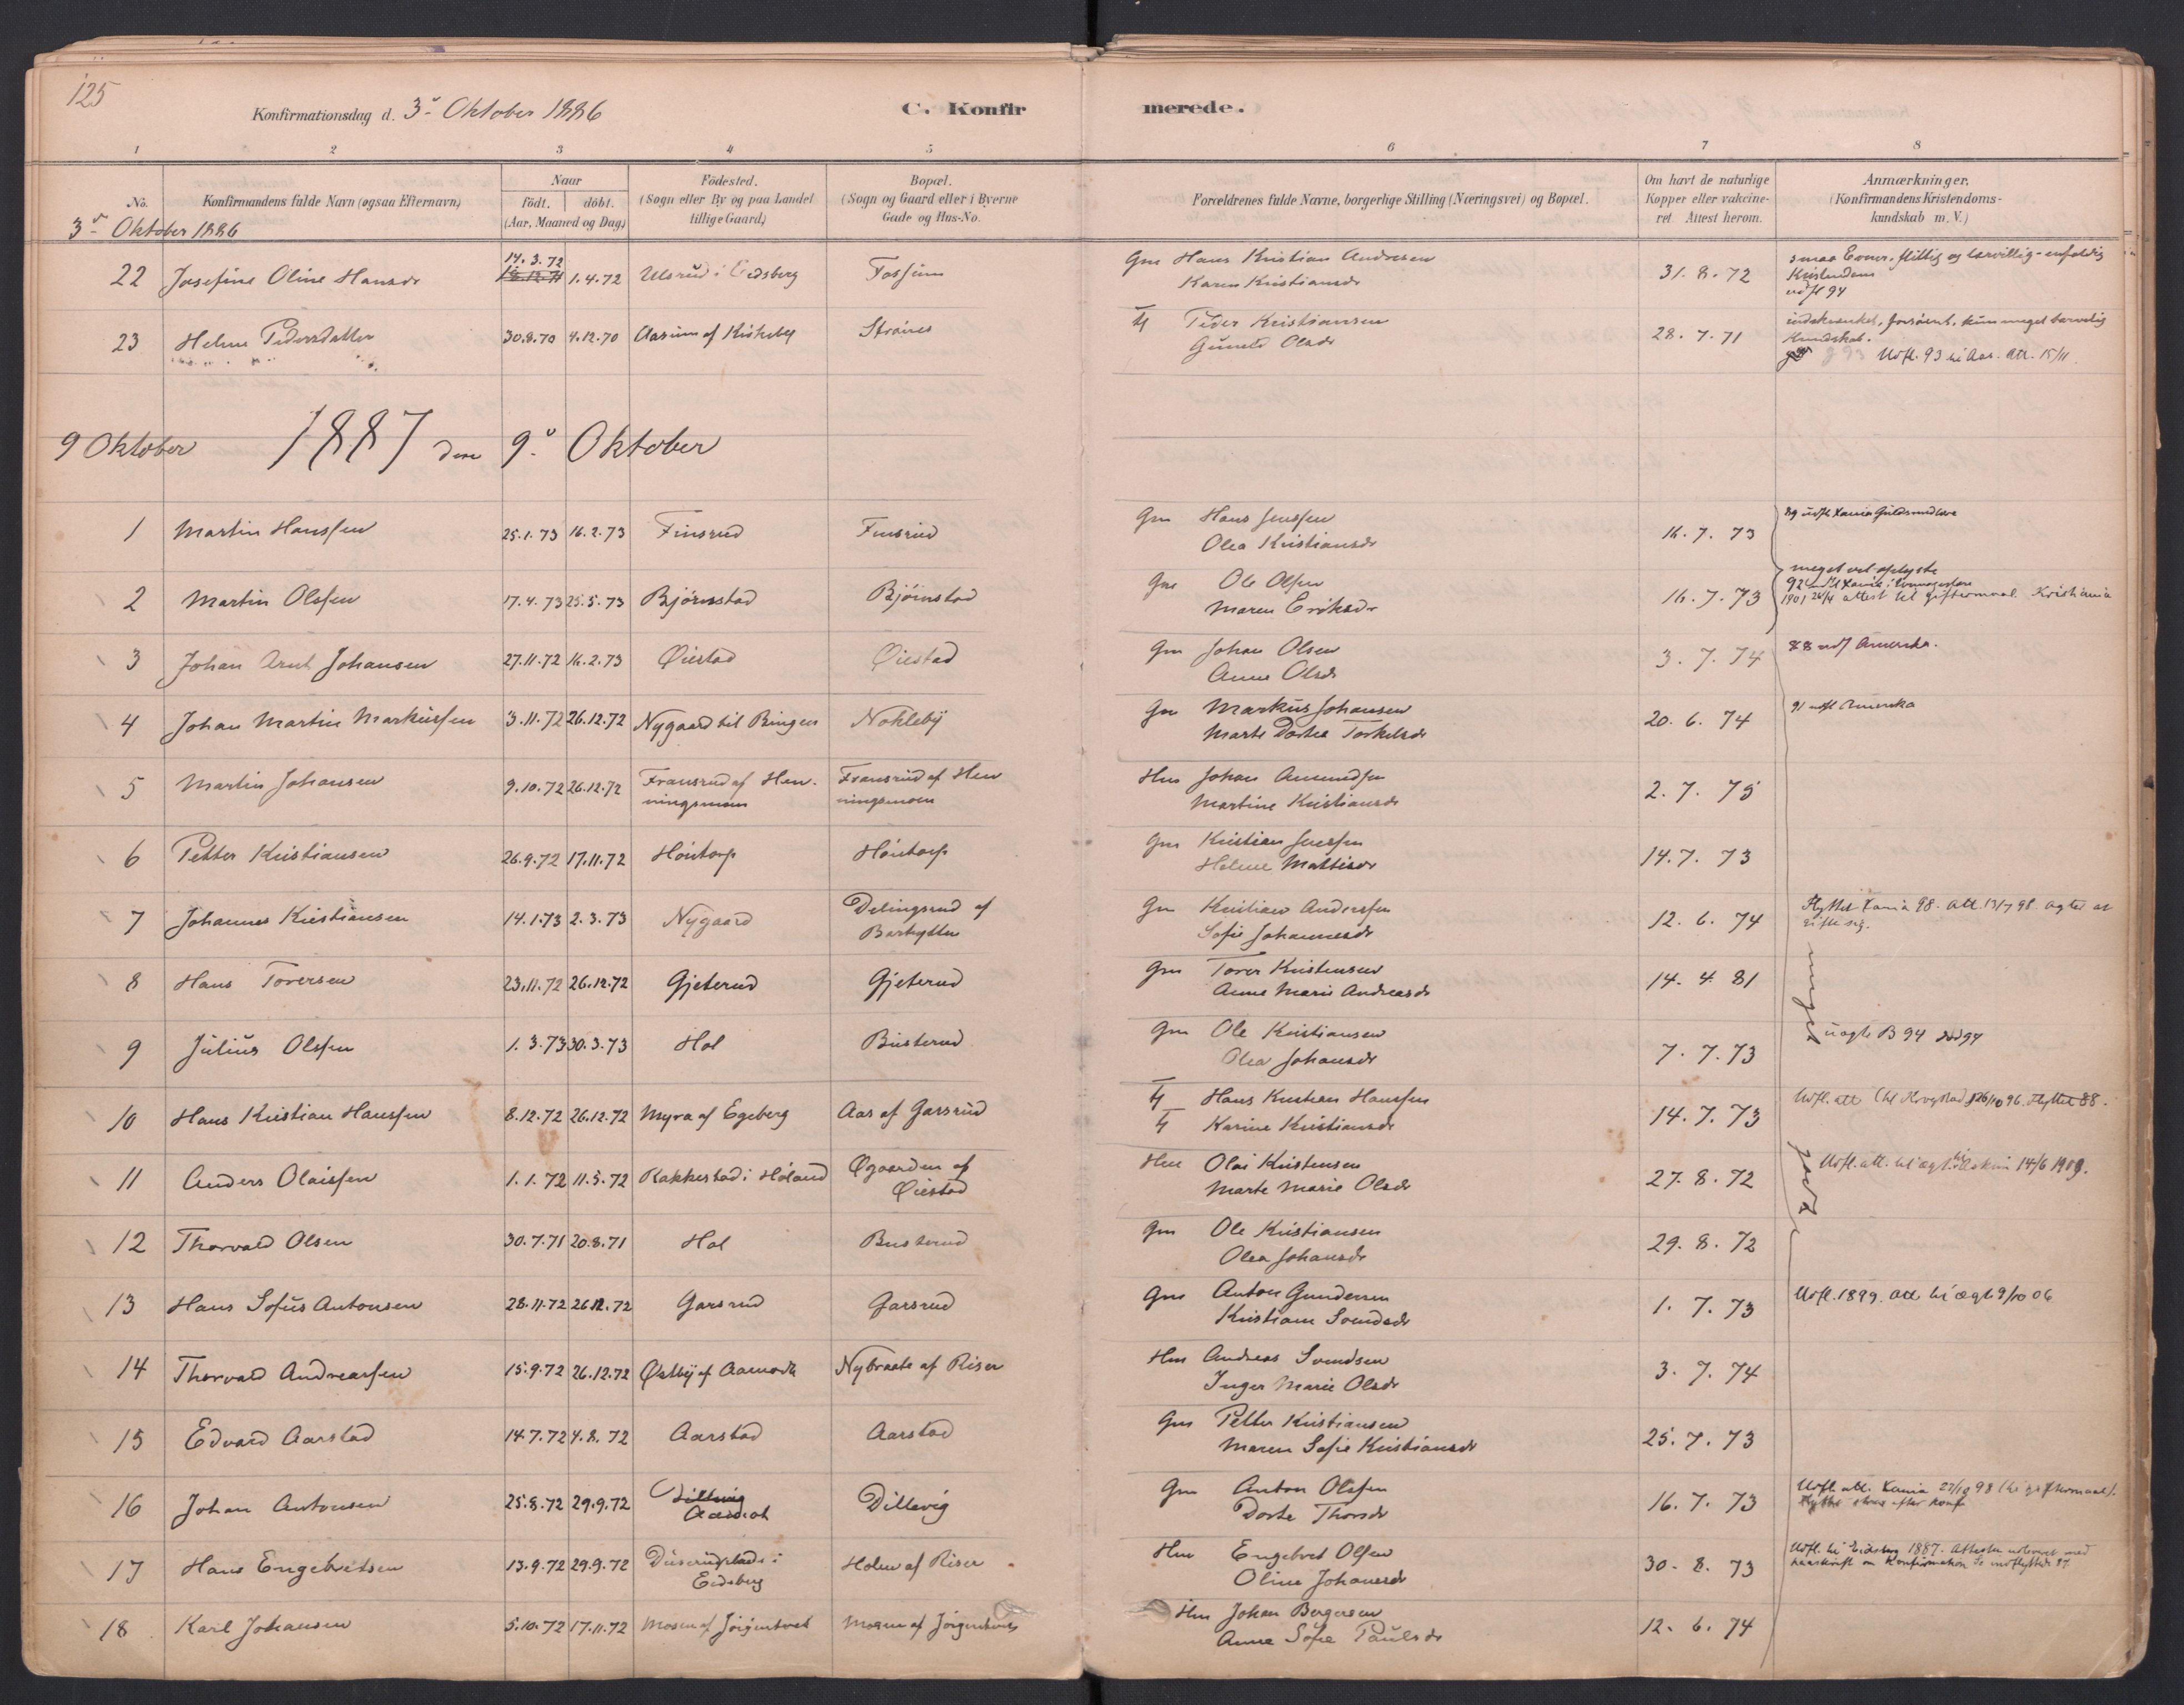 125
Konfirmationsdag d. 3- Oktober 1886
C. Konfirmerede.
1 2 3 4 5 6 7 8
No.
Konfirmandens fulde Navn (ogsaa Efternavn)
Naar
Födt. döbt.
(Aar, Maaned og Dag)
Födested.
(Sogn eller By og paa Landet
tillige Gaard)
Bopæl.
(Sogn og Gaard eller i Byerne
Gade og Hus-No.
Forældrenes fulde Navne, borgerlige Stilling (Næringsvei) og Bopæl.
Om havt de naturlige
Kopper eller vakcine-
ret. Attest herom.
Anmærkninger,
(Konfirmandens Kristendoms-
kundskab m. V.)
3- Oktober 1886
22 Josefine Oline Hansdr 14.3.72 1.4.72 Ulsrud i Eidsberg Fossum Gm Hans Kristian Andresen 31.8.72 smaa Evner, flittig og lærvillig - enfoldig
Karen Kristiansdr Kristendom
udfl 94
23 Helene Pedersdatter 30.8.70 4.12.70 Aasum af Kirkeby Peder Kristiansen 28.7.71
Gunild Olsdr Kundskab.
Udfl. 93 Att. 15/11
9 Oktober 1887 den 9- Oktober
1 Martin Hanssen 25.1.73 16.2.73 Finsrud Finsrud Gm Hans Jenssen 16.7.73 89 udfl Xania Guldsmedlære
Olea Kristiansdr
2 Martin Olssen 17.4.73 25.5.73 Björnstad Björnstad Gm Ole Olssen 16.7.73 meget vel oplyste
Maren Eriksdr 1901 24/4 attest til giftermaal Kristiania
3 Johan Arnt Johansen 27.11.72 16.2.73 Øiestad Øiestad Gm Johan Olsen 3.7.74 88 udf Amerika.
Anne Olsdr
4 Johan Martin Markussen 3.11.72 26.12.72 Nygaard til Bingen Nokleby Gm Markus Johansen 20.6.74 91 udfl Amerika
Marte Dortea Torkelsdr
5 Martin Johansen 9.10.72 26.12.72 Fransrud af Hen- Fransrud af Hen Hm Johan Amundsen 2.7.75
ningsmoen ningsmoen Martine Kristiansdr
6 Petter Kristiansen 26.9.72 17.11.72 Höntorp Höntorp Gm Kristian Jenssen 14.7.73
Helene Mattisdr
7 Johannes Kristiansen 14.1.73 2.3.73 Nygaard Delingsrud af Gm Kristian Anderssen 12.6.74 Flyttet Xania 98. Att. 13/7 98. agter at
Sofie Johannesdr gifte sig.
8 Hans Toversen 23.11.72 26.12.72 Gjeterud Gjeterud Gm Tover Kristensen 14.4.81 meget
Anne Marie Andreasdr
9 Julius Olssen 1.3.73 30.3.73 Hol Busterud Gm Ole Kristiansen 7.7.73 uægte B 94 död 94
Olea Johansdr
10 Hans Kristian Hanssen 8.12.72 26.12.72 Myra af Egeberg Aas af Garsrud Hans Kristian Hanssen 14.7.73 96. Flyttet 88.
Karine Kristiansdr
11 Anders Olaissen 1.1.72 11.5.72 Rakkestad i Höland Øgaarden af Hm Olai Kristensen 27.8.72 Udfl. att. 14/6 1909.
Øiestad Marte Marie Olsdr godt
12 Thorvald Olsen 30.7.71 20.8.71 Hol Busterud Gm Ole Kristiansen 29.8.72
Olea Johansdr
13 Hans Sofus Antonsen 28.11.72 26.12.72 Garsrud Garsrud Gm Anton Gundersen 1.7.73 Udfl. 1899. att til ægt. 9/10 06
Kristiane Svendsdr
14 Thorvald Andreassen 15.9.72 26.12.72 Østby af Aamodt Nybraate af Riser Hm Andreas Svendsen 3.7.74
Inger Marie Olsdr
15 Edvard Aarstad 14.7.72 4.8.72 Aarstad Aarstad Gm Petter Kristiansen 25.7.73
Maren Sofie Kristiansdr
16 Johan Antonsen 25.8.72 29.9.72 Dillevig Dillevig Gm Anton Olssen 16.7.73 Udfl. att. Xania 27/10 98 (til giftermaal).
Dorte Thorsdr Flyttet strax efter konf
17 Hans Engebretsen 13.9.72 29.9.72 Holm af Riser Hm Engebret Olssen 30.8.73 Udfl. til Eidsberg 1887. Attesten udleveret med
Eidsberg Oline Johansdr paaskrift om Konfirmation. Se indflyttede 87.
18 Karl Johansen 5.10.72 17.11.72 Mosen af Jörgentvet Mosen af Jörgentvet Hm Johan Bergersen 12.6.74
Anne Sofie Paulsdr